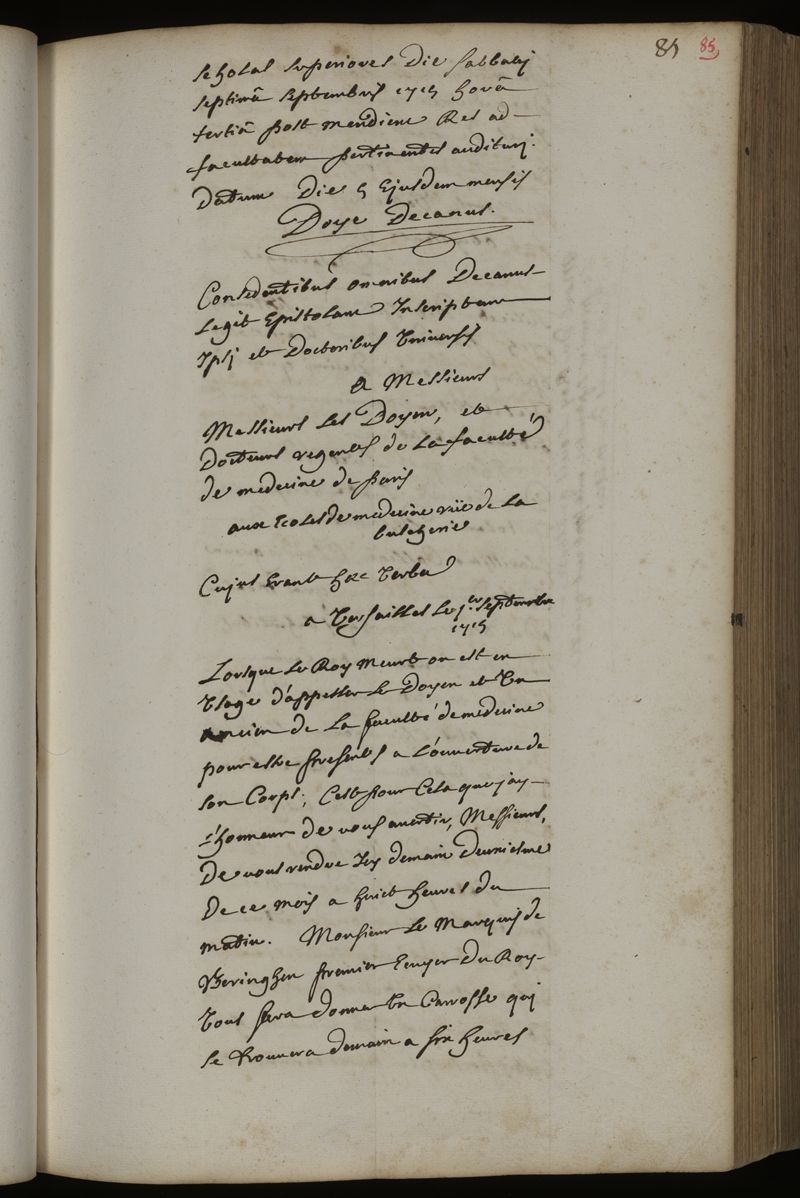 85 85
scholas superiores Die sabbati
septimâ septembris 1715 horâ
tertiâ post meridiem Res ad
facultatem pertinentes audituri.
Datum Die 5 Ejusdem mensis
Doye Decanus.
Considentibus omnibus Decanus
Legit Epistolam Inscriptam
Ipsi et Doctoribus Universis
A Messieurs
Messieurs Les Doyen, et
Docteurs regents de La faculté
de medecine de paris
aux Ecoles de medecine rüe de La
bucherie
Cujus Erant hæc Verba
a Versailles Le 1er septembre
1715
Lorsque Le Roy meurt on est en
Usage d'appeller Le Doyen et Un
Ancien de La faculté de medecine
pour estre presents a L'ouverture de
son Corps; C'est pour Cela que j'ay
L'honneur de vous avertir, Messieurs,
De vous rendre Icy demain deuxiesme
De ce mois a huict heures du
matin. Monsieur Le Marquis de
Beringhen premier Ecuyer Du Roy
Vous fera donner Un Carrosse qui
se trouvera demain a six heures